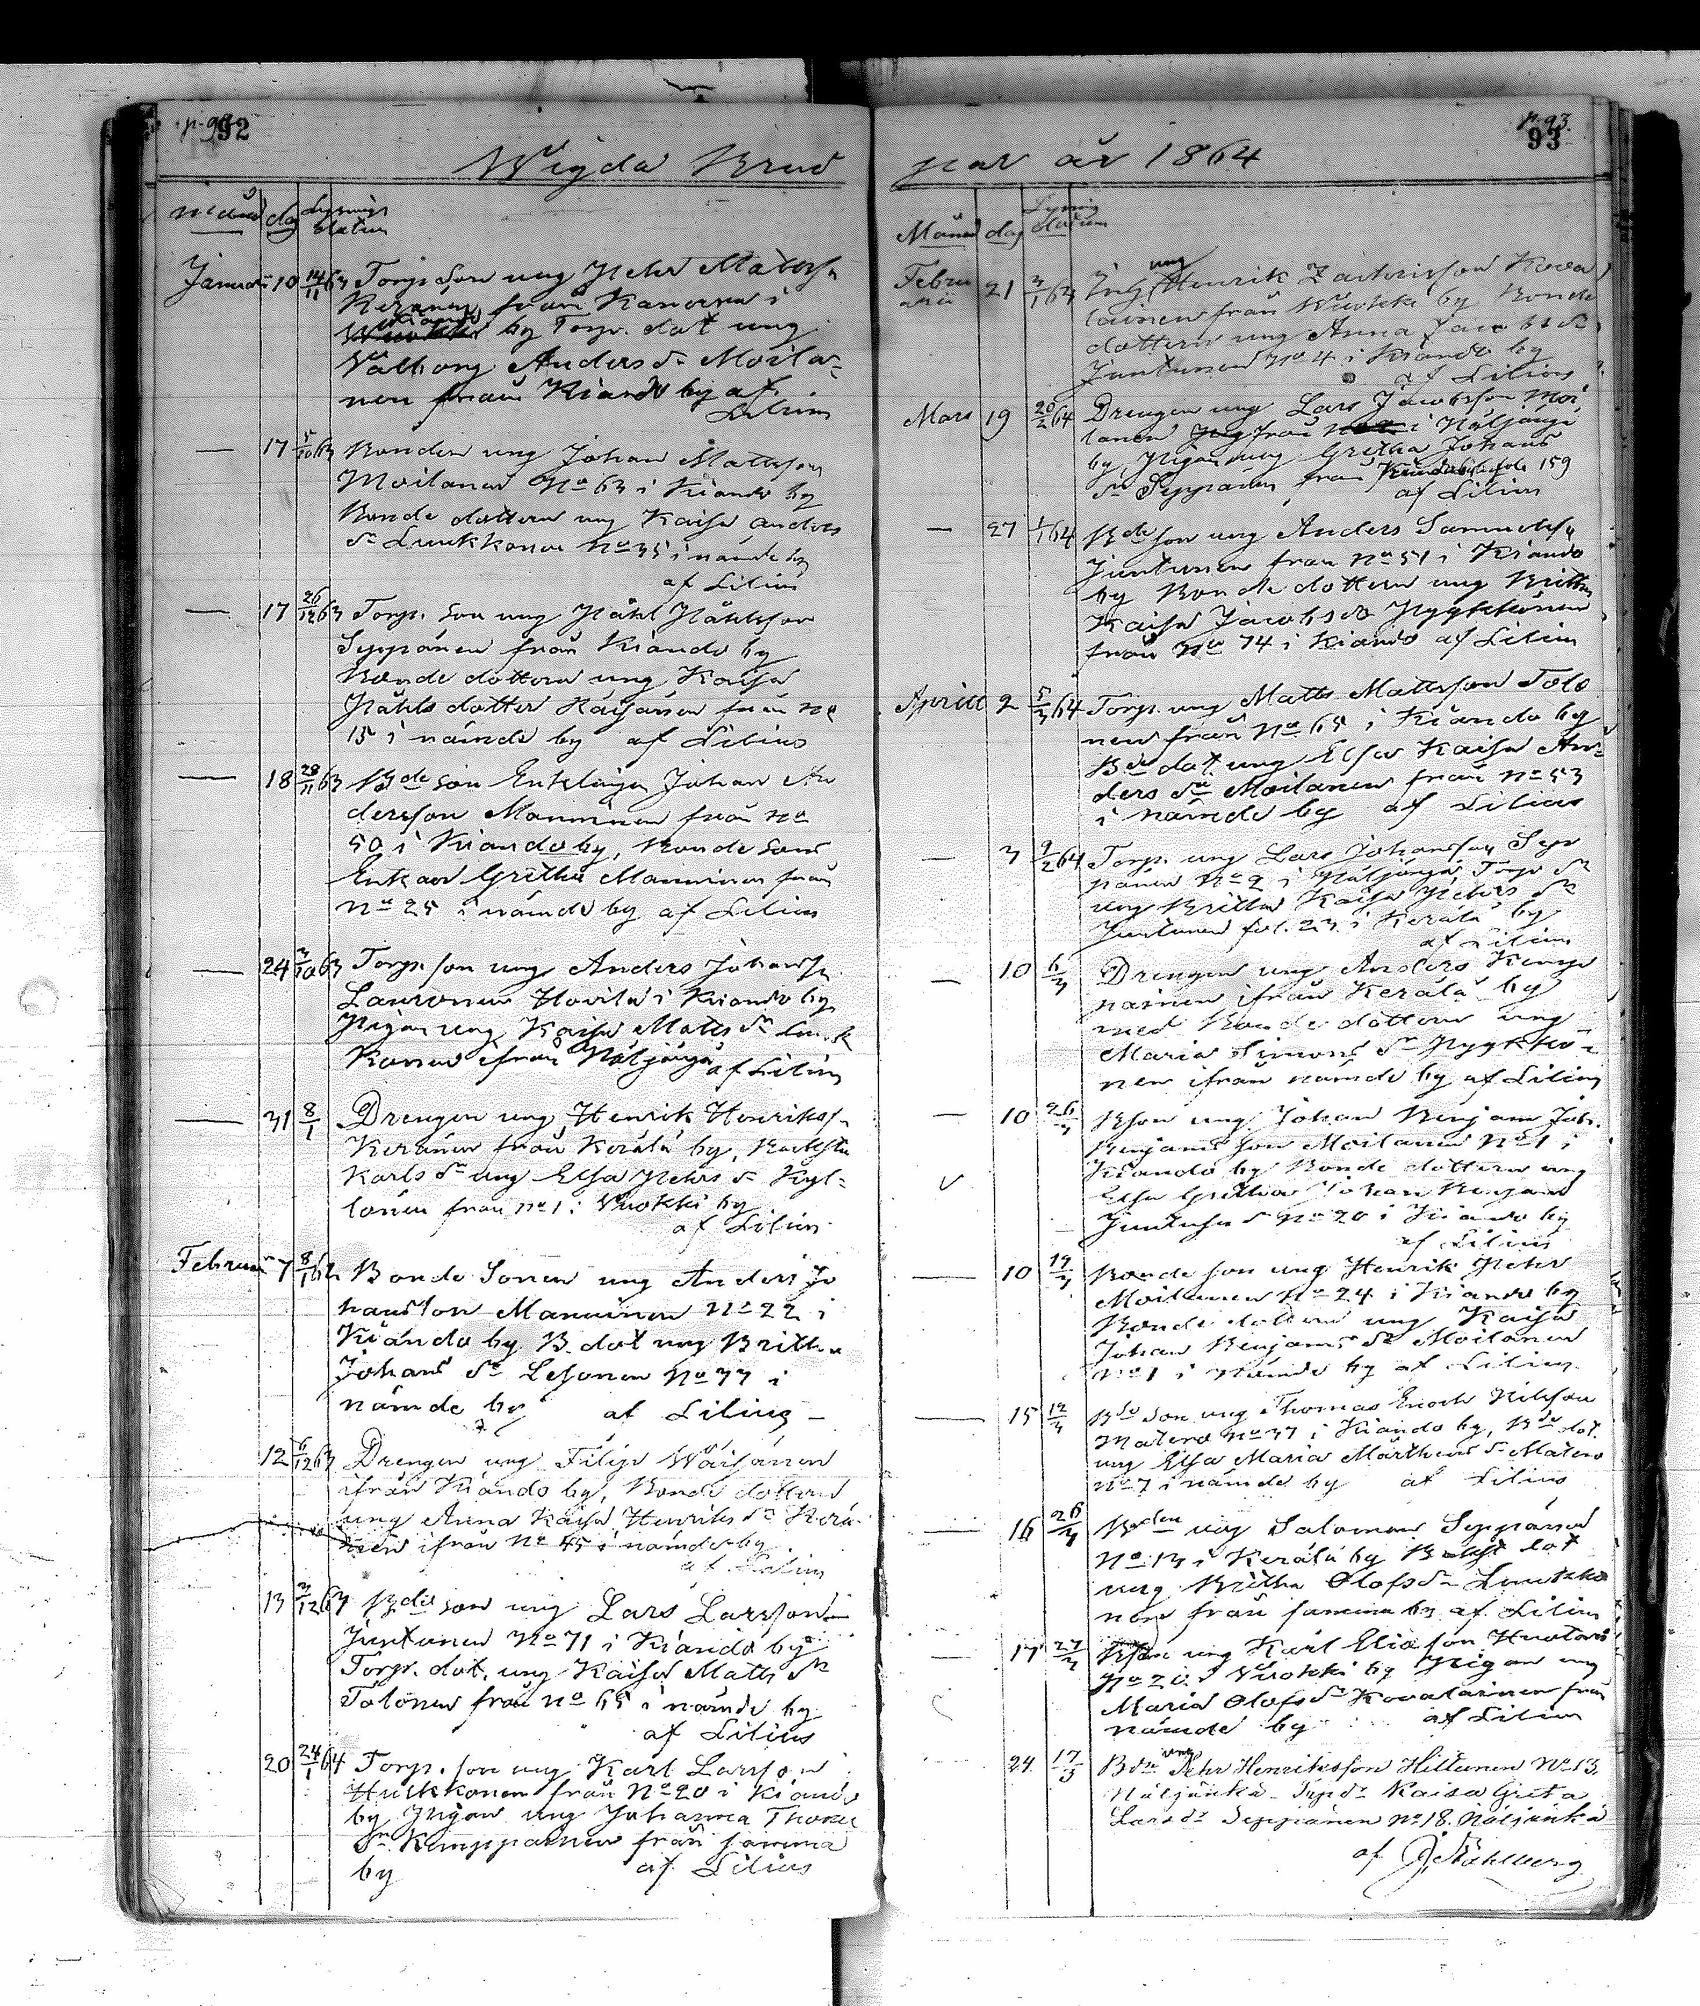 p. 92
92
Wigda Brud
månad dag Lysnings datum
Januari 10 14/11 63 Torp. son ung Pehr Mattss.
Keränen från Kanerva i
Kiando by Torp. dot ung
Valborg Anders dr Moila-
nen från Kiando by af
Lilius
— 17 5/10 63 Bonden ung Johan Mattsson
Moilanen No 63 i Kiando by
Bonde dottern ung Kaisa Anders
dr Luukkonen No 35 i nämde by
af Lilius
— 17 26/12 63 Torp. son ung Påhl Påhlsson
Seppänen från Kiando by
Bonde dottern ung Kaisa
Påhls dotter Häisänen från No
15 i nämde by af Lilius
— 18 28/11 63 Bde son Enklingn Johan An
dersson Manninen från No
50 i Kiando by, Bonde sons
Enkan Gretha Manninen från
No 25 i nämde by af Lilius
— 24 3/10 63 Torp. son ung Anders Johanss.
Lauronen Hovila i Kiando by
Pigan ung Kaisa Matts dr Luuk
konen ifrån Näljängä af Lilius
— 31 8/1 Drengen ung Henrik Henrikss.
Keränen från Kerälä by,
Karls dr ung Elsa Pehrs dr Kyl-
lönen från No 1 i Vuokki by
af Lilius
Februari 7 8/1 62 Bonde Sonen ung Anders Jo
hansson Manninen No 22 i
Kiando by B. dot ung Britha
Johans dr Lesonen No 37 i
nämde by af Lilius —
12 6/12 63 Drengen ung Filip Wäisänen
ifrån Kiando by, Bonde dottern
ung Anna Kaisa Henriks dr Kerä-
nen ifrån No 45 i nämde by
af Lilius
13 3/12 63 Bde son ung Lars Larsson
Juntunen No 71 i Kiando by
Torp. dot. ung Kaisa Matts dr
Tolonen från No 65 i nämde by
af Lilius
20 24/1 64 Torp. son ung Karl Larsson
Huikkonen från No 20 i Kiando
by Pigan ung Johanna Thomas
dr Kemppainen från samma
by af Lilius
p. 93
93
par år 1864
Månad dag Lysnings datum
Februarii 21 3/1 63 ung Henrik Zachrisson Kova
lainen från Wuokki by Bonde
dottern ung Anna Jacobs dr
Juntunen No 4 i Kiando by
af Lilius
Mars 19 20/2 64 Drengen ung Lars Jacobsson Moi
lanen från i Näljängä
by, Pigan ung Gretha Johans
dr Seppänen från Kiando by fol. 159
af Lilius
— 27 1/1 64 Bde son ung Anders Samuelss.
Juntunen från No 51 i Kiando
by Bonde dottern ung Britha
Kaisa Jacobs dr Pyykkönen
från No 74 i Kiando af Lilius
Aprill 2 5/3 64 Torp. ung Matts Mattsson Tolo
nen från No 65 i Kiando by
Bde dot. ung Elsa Kaisa An-
ders dr Moilanen från No 53
i nämde by af Lilius
— 3 9/2 64 Torp. ung Lars Johansson Sep
pänen No 9 i Näljängä Torp. dr
ung Britha Kaisa Pehrs dr
Juntunen fol. 23 i Kerälä by
af Lilius
— 10 6/3 Drengen ung Anders Kemp
painen ifrån Kerälä by
med Bonde dottern ung
Maria Simons dr Pyykkö-
nen ifrån nämde by af Lilius
— 10 26/3 Bson ung Johan Benjam Joh.
Benjams son Moilanen No 1 i
Kiando by Bonde dottern ung
Elsa Gretha Johan Benjams
Juntusen dr No 20 i Kiando by
af Lilius
— 10 19/3 Bonde son ung Henrik Pehr
Moilanen No 24 i Kiando by
Bonde dottern ung Kaisa
Johan Benjams dr Moilanen
No 1 i nämde by af Lilius
— 15 12/3 Bde son ung Thomas Enoch Nilsson
Matero No 37 i Kiando by, Bde dot.
ung Elsa Maria Märthens dr Matero
No 7 i nämde by af Lilius
— 16 26/3 Bden ung Salomon Seppänen
No 13 i Kerälä by dot
ung Britha Olofs dr Luukko
nen från samma by af Lilius
— 17 27/3 Bson ung Karl Eliasson Huotari
No 20 i Vuokki by Pigan ung
Maria Olofs dr Kovalainen från
nämde by af Lilius
24. 17/3 Bdn ung Pehr Henriksson Hiltunen No 13.
Näljänkä Torp dr Kaisa Greta
Lars dr Seppänen No 18. Näljänkä
af J. Ståhlberg